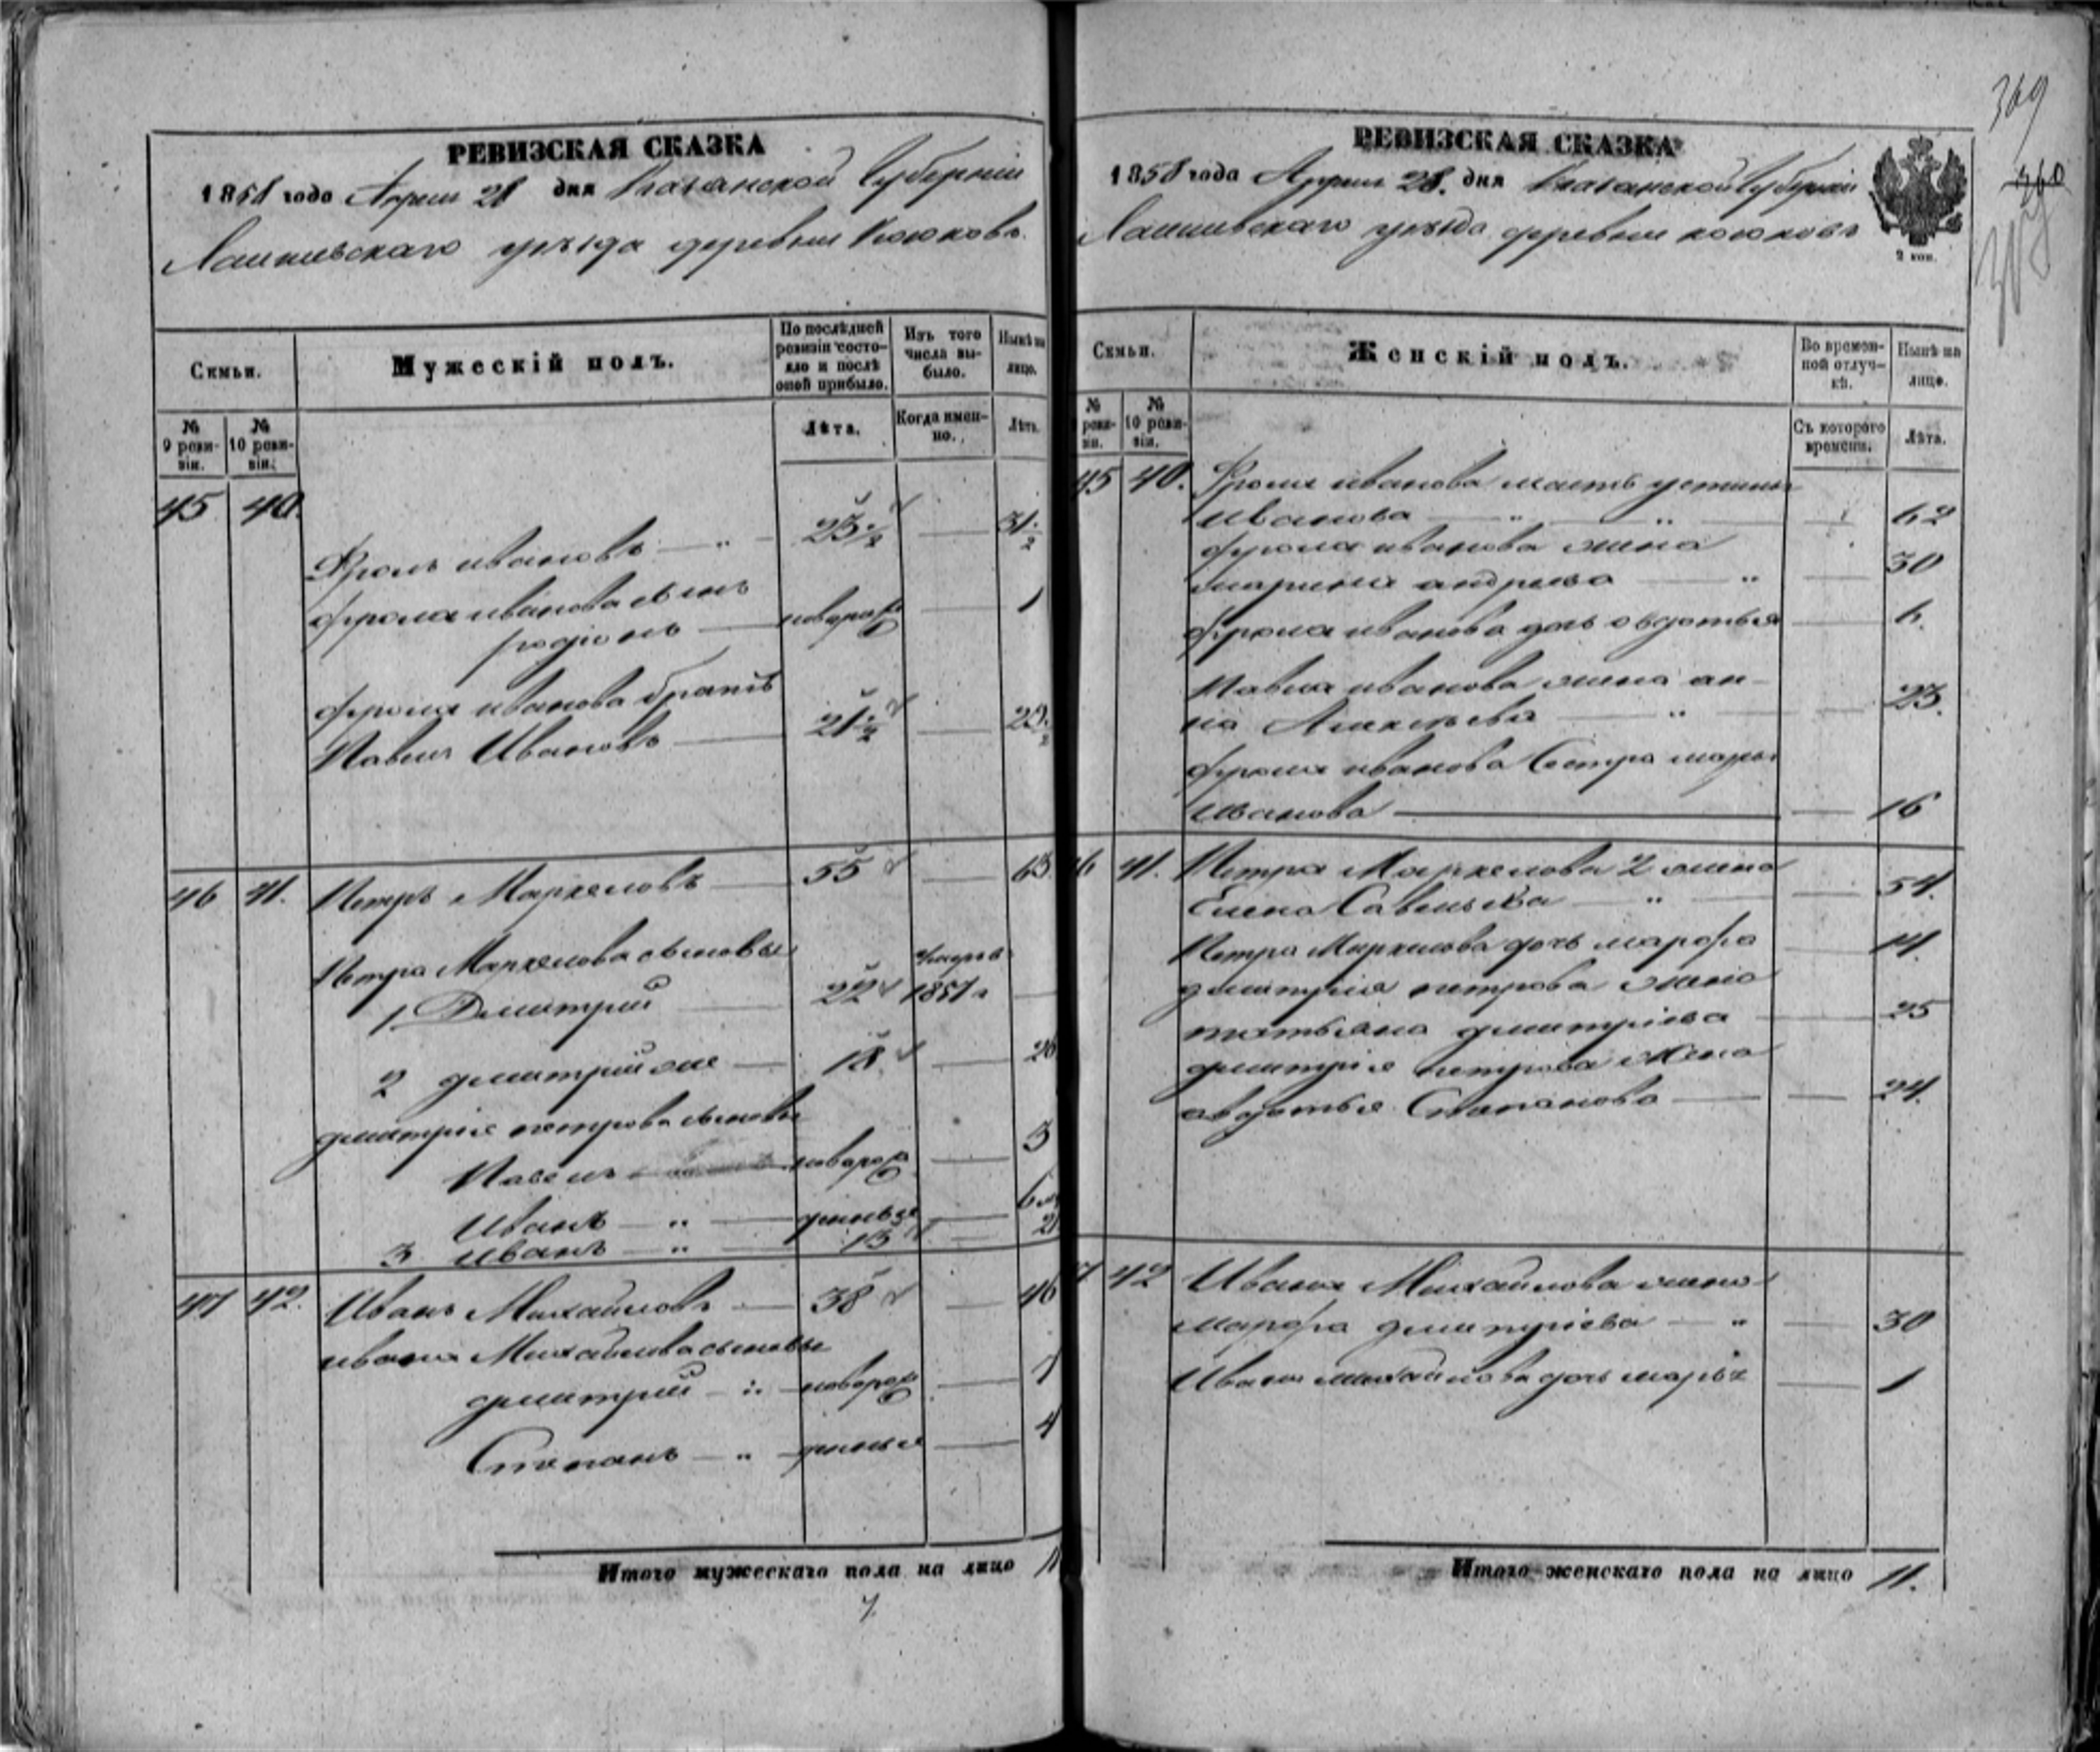 РЕВИЗСКАЯ СКАЗКА
1858 года Апреля 28 дня Казанской Губернии
Лаишевскаго уезда деревни Кюковъ
Семьи.
Мужескій полъ.
По послѣдней ревизіи состояло и послѣ оной прибыло.
Изъ того числа выбыло.
Нынѣ на лицо.
№ 9 ревизіи.
№ 10 ревизіи.
Лѣта.
Когда именно.
Лѣта.
45 40.
Фролъ ивановъ — " — 23 1/2 — 31 1/2
фрола иванова сынъ
родионъ — новорож — 1
фрола иванова братъ
Павелъ Ивановъ — 21 1/2 — 29 1/2
46 41. Петръ Маркеловъ — 55 — 63.
Петра Маркелова сыновья
1 Дмитрий — 22 умеръ в 1851 г —
2 дмитрий же — 18 — 26
дмитрия петрова сыновья
Павелъ — новорож — 3
Иванъ — " — 6 м
3 иванъ — " — 13 — 21
47 42. Иванъ Михайловъ — 38 — 46
ивана Михайлова сыновья
дмитрий — " — новорож — 7
Степанъ — " — 4
Итого мужескаго пола на лицо 11
7.
369
360
РЕВИЗСКАЯ СКАЗКА
1858 года Апреля 28. дня Казанской Губернии
Лаишевскаго уезда деревни кюковъ
2 коп.
Семьи.
Женскій полъ.
Во временной отлучкѣ.
Нынѣ на лицо.
№ 9 ревизіи.
№ 10 ревизіи.
Съ котораго времени.
Лѣта.
45 40. Фрола иванова мать устинья
иванова — " — " — 62
фрола иванова жена
марина андреева — " — 30
фрола иванова дочь овдотья — 6.
Павла иванова жена ан-
на Алексеева — " — 23.
фрола иванова Сестра марья
иванова — 16
46 41. Петра Маркелова 2 жена
Елена Савельева — " — 54.
Петра Маркелова дочь марфа — 14.
дмитрия петрова жена
татьяна дмитриева — 25
дмитрия петрова жена
авдотья Степанова — 24.
47 42 Ивана Михайлова жена
марфа дмитриева — " — 30
Ивана михайлова дочь марья — 1
Итого женскаго пола на лицо 11.